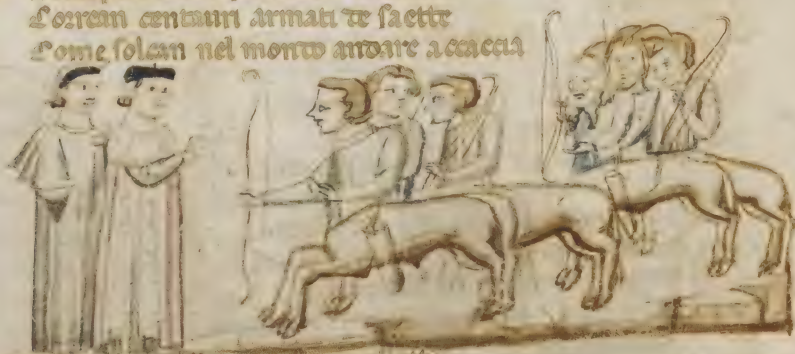 Correan centauri armati de saette
Come solean nel mondo andare accaccia